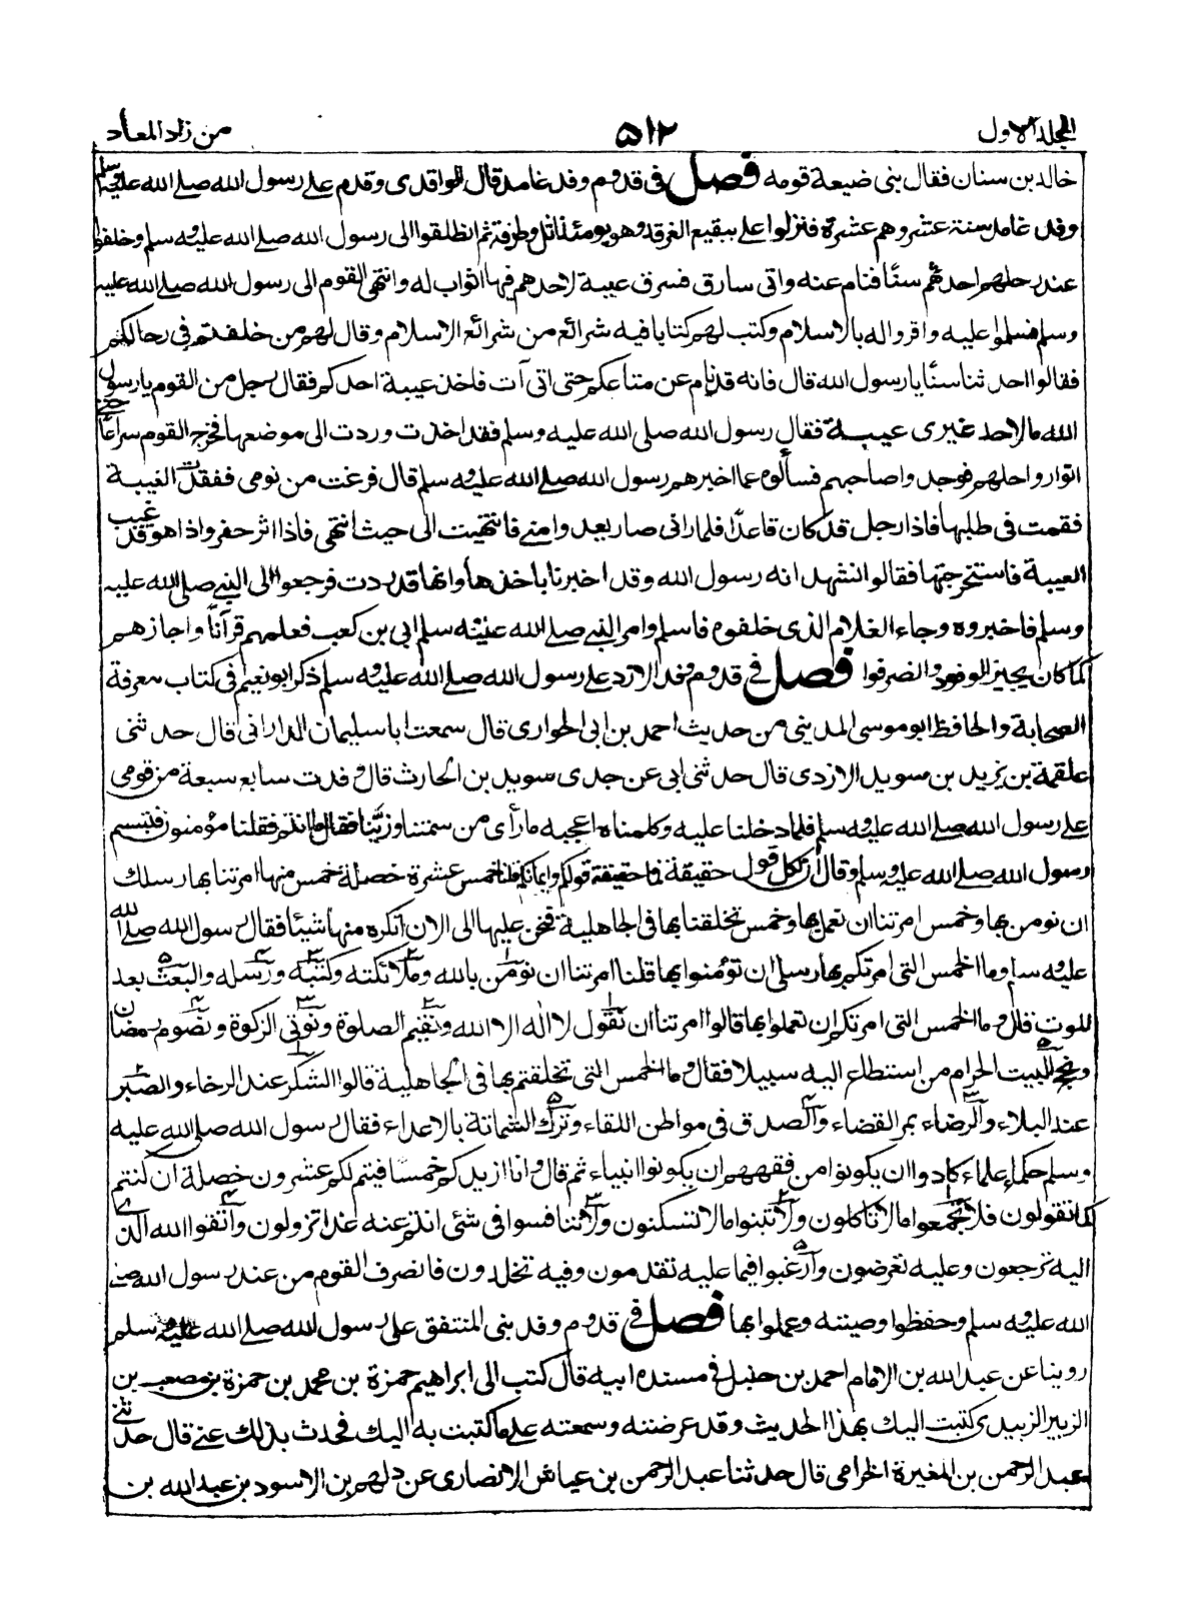 المجلد الاول ۵۱۲ من زاد المعاد
خالد بن سنان فقال بنى ضيعة قومه فصل فى قدوم وفد غامد قال الواقدى وقدم على رسول الله صلى الله عليه وسلم
وفد غامد سنة عشر وهم عشرة فنزلوا على ببقيع الغرقد وهو يومئذ اثل وطرفة ثم انطلقوا الى رسول الله صلى الله عليه وسلم وخلفوا
عند رحلهم احدثهم سنًّا فنام عنه واتى سارق فسرق عيبة لاحدهم فيها اثواب له وانتهى القوم الى رسول الله صلى الله عليه
وسلم فسلموا عليه واقروا له بالاسلام وكتب لهم كتابا فيه شرائع من شرائع الاسلام وقال لهم من خلفتم فى رحالكم
فقالوا احدثنا سنًّا يا رسول الله قال فانه قد نام عن متاعكم حتى اتى آت فاخذ عيبة احدكم فقال رجل من القوم يا رسول
الله ما لاحد غيرى عيبة فقال رسول الله صلى الله عليه وسلم فقد اخذت وردت الى موضعها فخرج القوم سراعًا حتى
اتوا رواحلهم فوجدوا صاحبهم فسألوه عما اخبرهم رسول الله صلى الله عليه وسلم قال فزعت من نومى ففقدت العيبة
فقمت فى طلبها فاذا رجل قد كان قاعدًا فلما رانى صار يعدو امنى فانتهيت الى حيث انتهى فاذا اثر حفر واذا هو قد غيب
العيبة فاستخرجتها فقالوا نشهد انه رسول الله وقد اخبرنا باخذها وانها قد ردت فرجعوا الى النبى صلى الله عليه
وسلم فاخبروه وجاء الغلام الذى خلفوه فاسلم وامر النبى صلى الله عليه وسلم ابى بن كعب فعلمهم قرآنًا واجازهم
كما كان يجيز الوفود وانصرفوا فصل فى قدوم وفد الازد على رسول الله صلى الله عليه وسلم ذكر ابو نعيم فى كتاب معرفة
الصحابة والحافظ ابو موسى المدينى من حديث احمد بن ابى الحوارى قال سمعت ابا سليمان الدارانى قال حدثنى
علقمة بن يزيد بن سويد الازدى قال حدثنى ابى عن جدى سويد بن الحارث قال وفدت سابع سبعة من قومى
على رسول الله صلى الله عليه وسلم فلما دخلنا عليه وكلمناه اعجبه ما رأى من سمتنا وزيّنا فقال ما انتم فقلنا مؤمنون فتبسم
رسول الله صلى الله عليه وسلم وقال ان لكل قول حقيقة فما حقيقة قولكم وايمانكم قلنا خمس عشرة خصلة خمس منها امرتنا بها رسلك
ان نومن بها وخمس امرتنا ان نعمل بها وخمس تخلقنا بها فى الجاهلية فنحن عليها الى الان الا ان تكره منها شيئا فقال رسول الله صلى الله
عليه وسلم وما الخمس التى امرتكم بها رسلى ان تؤمنوا بها قلنا امرتنا ان نؤمن بالله وملائكته وكتبه ورسله والبعث بعد
الموت قال وما الخمس التى امرتكم ان تعملوا بها قالوا امرتنا ان نقول لا اله الا الله ونقيم الصلوة ونوتى الزكوة ونصوم رمضان
ونحج البيت الحرام من استطاع اليه سبيلا فقال وما الخمس التى تخلقتم بها فى الجاهلية قالوا الشكر عند الرخاء والصبر
عند البلاء والرضاء بمر القضاء والصدق فى مواطن اللقاء وترك الشماتة بالاعداء فقال رسول الله صلى الله عليه
وسلم حكماء علماء كادوا ان يكونوا من فقههم ان يكونوا انبياء ثم قال وانا ازيدكم خمسا فيتم لكم عشرون خصلة ان كنتم
كما تقولون فلا تجمعوا ما لا تاكلون ولا تبنوا ما لا تسكنون ولا تنافسوا فى شئى انتم عنه غدا تزولون واتقوا الله الذى
اليه ترجعون وعليه تعرضون وارغبوا فيما عليه تقدمون وفيه تخلدون فانصرف القوم من عند رسول الله صلى
الله عليه وسلم وحفظوا وصيته وعملوا بها فصل فى قدوم وفد بنى المنتفق على رسول الله صلى الله عليه وسلم
روينا عن عبد الله بن الامام احمد بن حنبل فى مسند ابيه قال كتب الى ابراهيم بن حمزة بن محمد بن حمزة بن مصعب بن
الزبير الزبيدى كتبت اليك بهذا الحديث وقد عرضته وسمعته على ما كتبت به اليك فحدث بذلك عنى قال حدثنى
عبد الرحمن بن المغيرة الخزامى قال حدثنا عبد الرحمن بن عياش الانصارى عن دلهم بن الاسود بن عبد الله بن